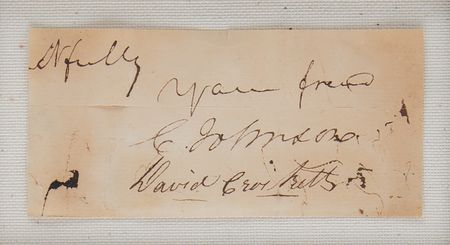 your friend
C. Johnson
David Crockett